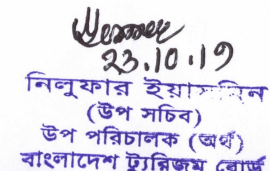 23.10.19
নিলুফার ইয়াসমিন
(উপ সচিব)
উপ পরিচালক (অর্থ)
বাংলাদেশ ট্যুরিজম বোর্ড